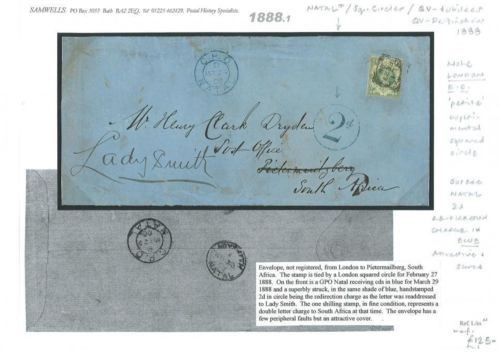 SAMWELLS: PO Box 3053 Bath BA2 2EQ. Tel 01225 462429. Postal History Specialists.
1888.1
NATAL / Sq. Circles / QV-Jubilee
1888
G.P.O.
NATAL
2d
Mr Henry Clark Dryden
Post Office
Lady Smith
Pietermaritzburg
South Africa
MORE
LONDON
E.C.
'petite'
experi-
mental
squared
circle
SUPERB
NATAL
2d
RE-DIRECTION
CHARGE IN
BLUE
ATTRACTIVE &
G.P.O.
NATAL
Envelope, not registered, from London to Pietermailberg, South
Africa. The stamp is tied by a London squared circle for February 27
1888. On the front is a GPO Natal receiving cds in blue for March 29
1888 and a superbly struck, in the same shade of blue, handstamped
2d in circle being the redirection charge as the letter was readdressed
to Lady Smith. The one shilling stamp, in fine condition, represents a
double letter charge to South Africa at that time. The envelope has a
few peripheral faults but an attractive cover.
£125-